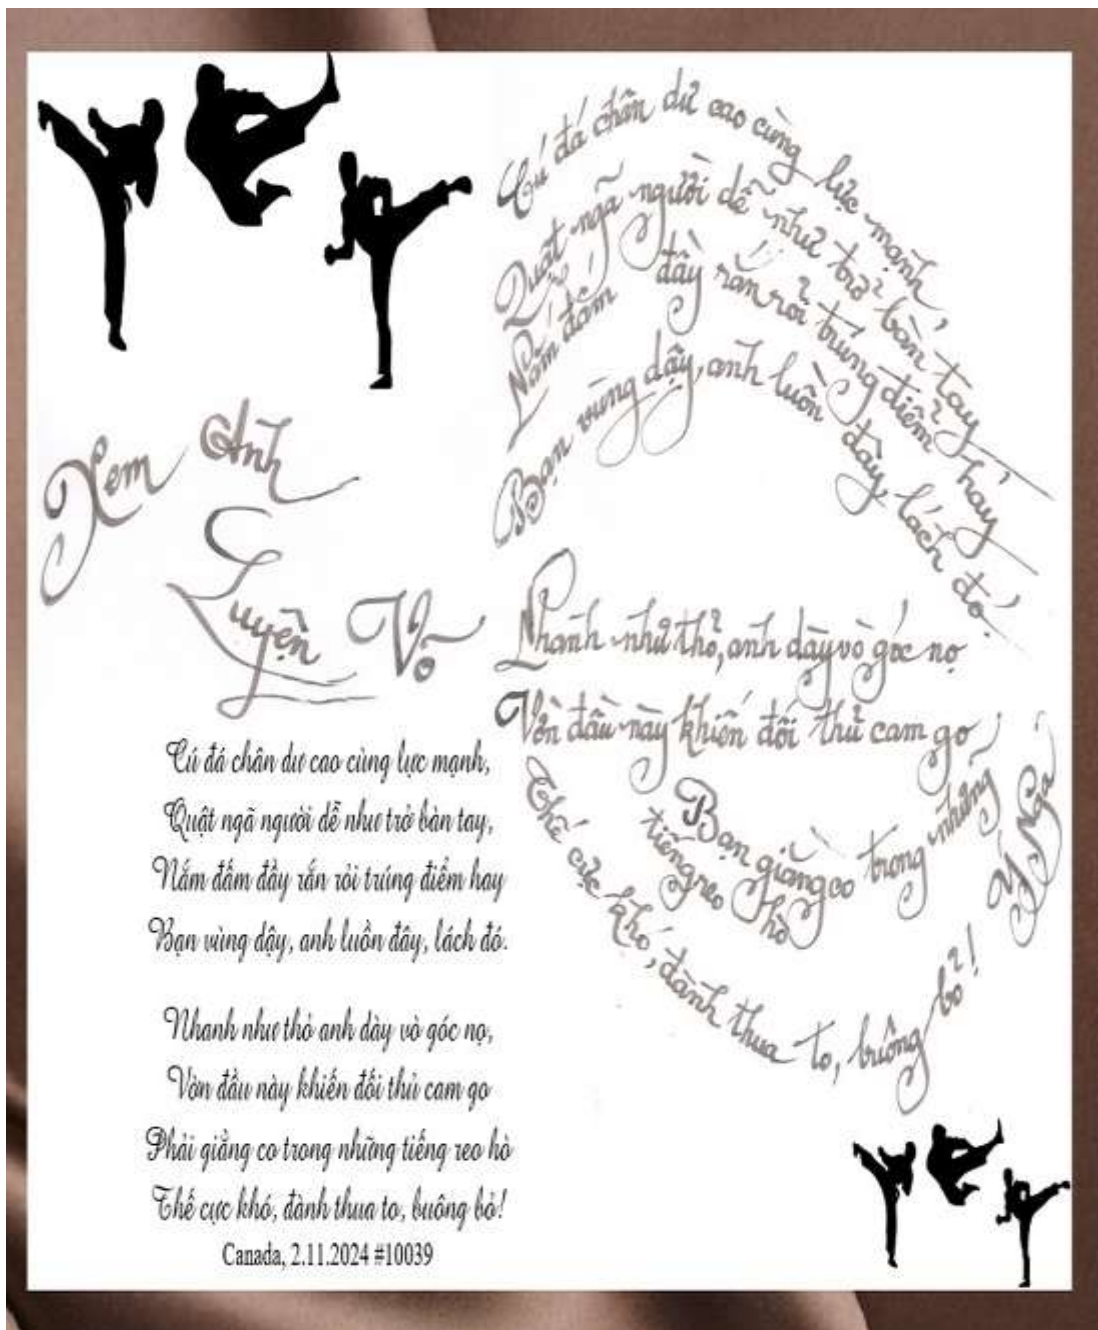 Xem Anh
Luyện Võ
Cú đá chân dư cao cùng lực mạnh,
Quật ngã người dễ như trở bàn tay,
Nắm đấm đầy rắn rỏi trúng điểm hay
Bạn vùng dậy, anh luồn đây, lách đó.
Nhanh như thỏ anh dày vò góc nọ,
Vờn đầu này khiến đối thủ cam go
Phải giằng co trong những tiếng reo hò
Thế cực khó, đành thua to, buông bỏ!
Canada, 2.11.2024 #10039
Cú đá chân dư cao cùng lực mạnh,
Quật ngã người dễ như trở bàn tay,
Nắm đấm đầy rắn rỏi trúng điểm hay
Bạn vùng dậy, anh luồn đây, lách đó.
Nhanh như thỏ, anh dày vò góc nọ
Vờn đầu này khiến đối thủ cam go
Bạn giằng co trong những
tiếng reo hò
Thế cực khó, đành thua to, buông bỏ!
Ý Nga